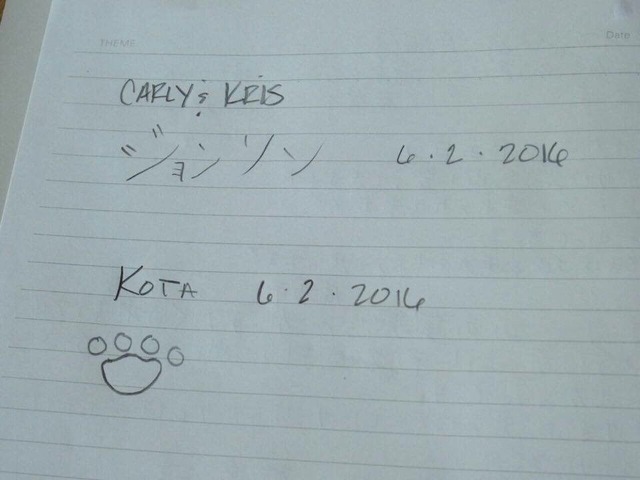 THEME
Date
CARLY & KRIS
ジョンソン 6.2.2016
KOTA 6.2.2016